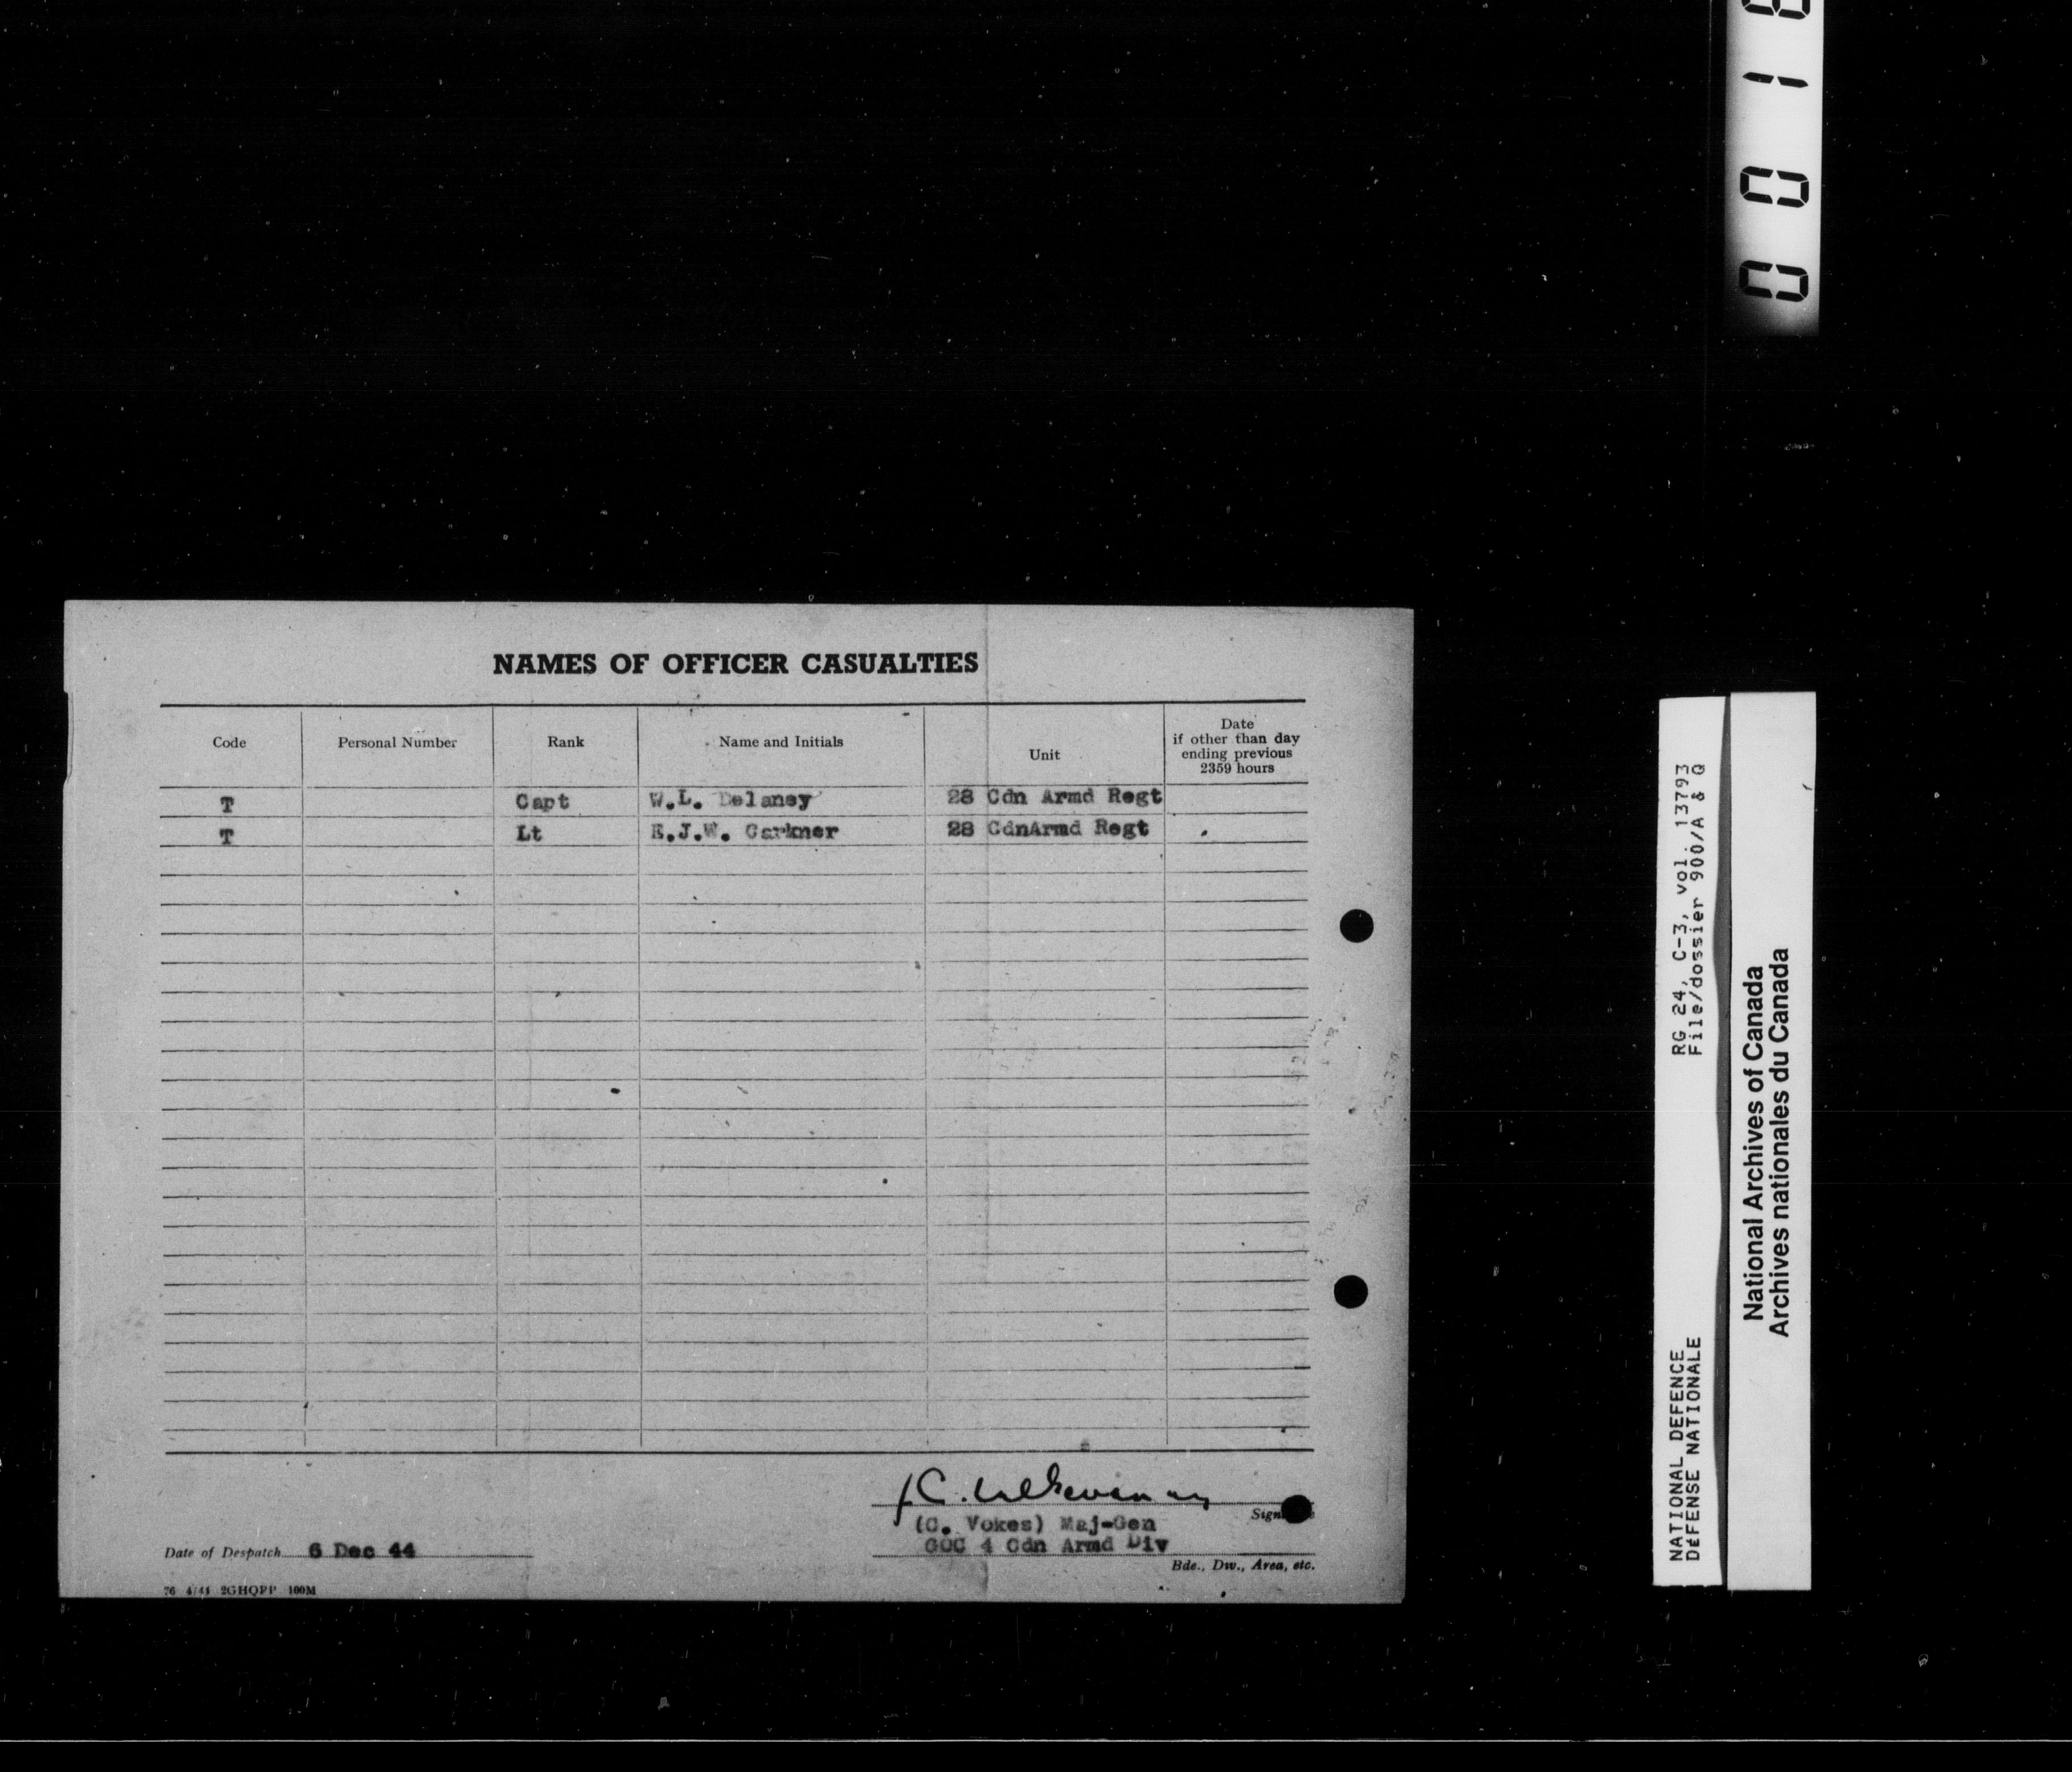 NAMES OF OFFICER CASUALTIES
Code Personal Number Rank Name and Initials Unit Date if other than day ending previous 2359 hours
T Capt W.L. Delaney 28 Cdn Armd Regt
T Lt E.J.W. Carkner 28 CdnArmd Regt
(C. Vokes) Maj-Gen
GOC 4 Cdn Armd Div
Date of Despatch 6 Dec 44
Bde., Dw., Area, etc.
76 4/44 2GHQPP 100M
RG 24, C-3, vol. 13793
File/dossier 900/A & Q
NATIONAL DEFENCE
DéFENSE NATIONALE
National Archives of Canada
Archives nationales du Canada
0 0 1 8